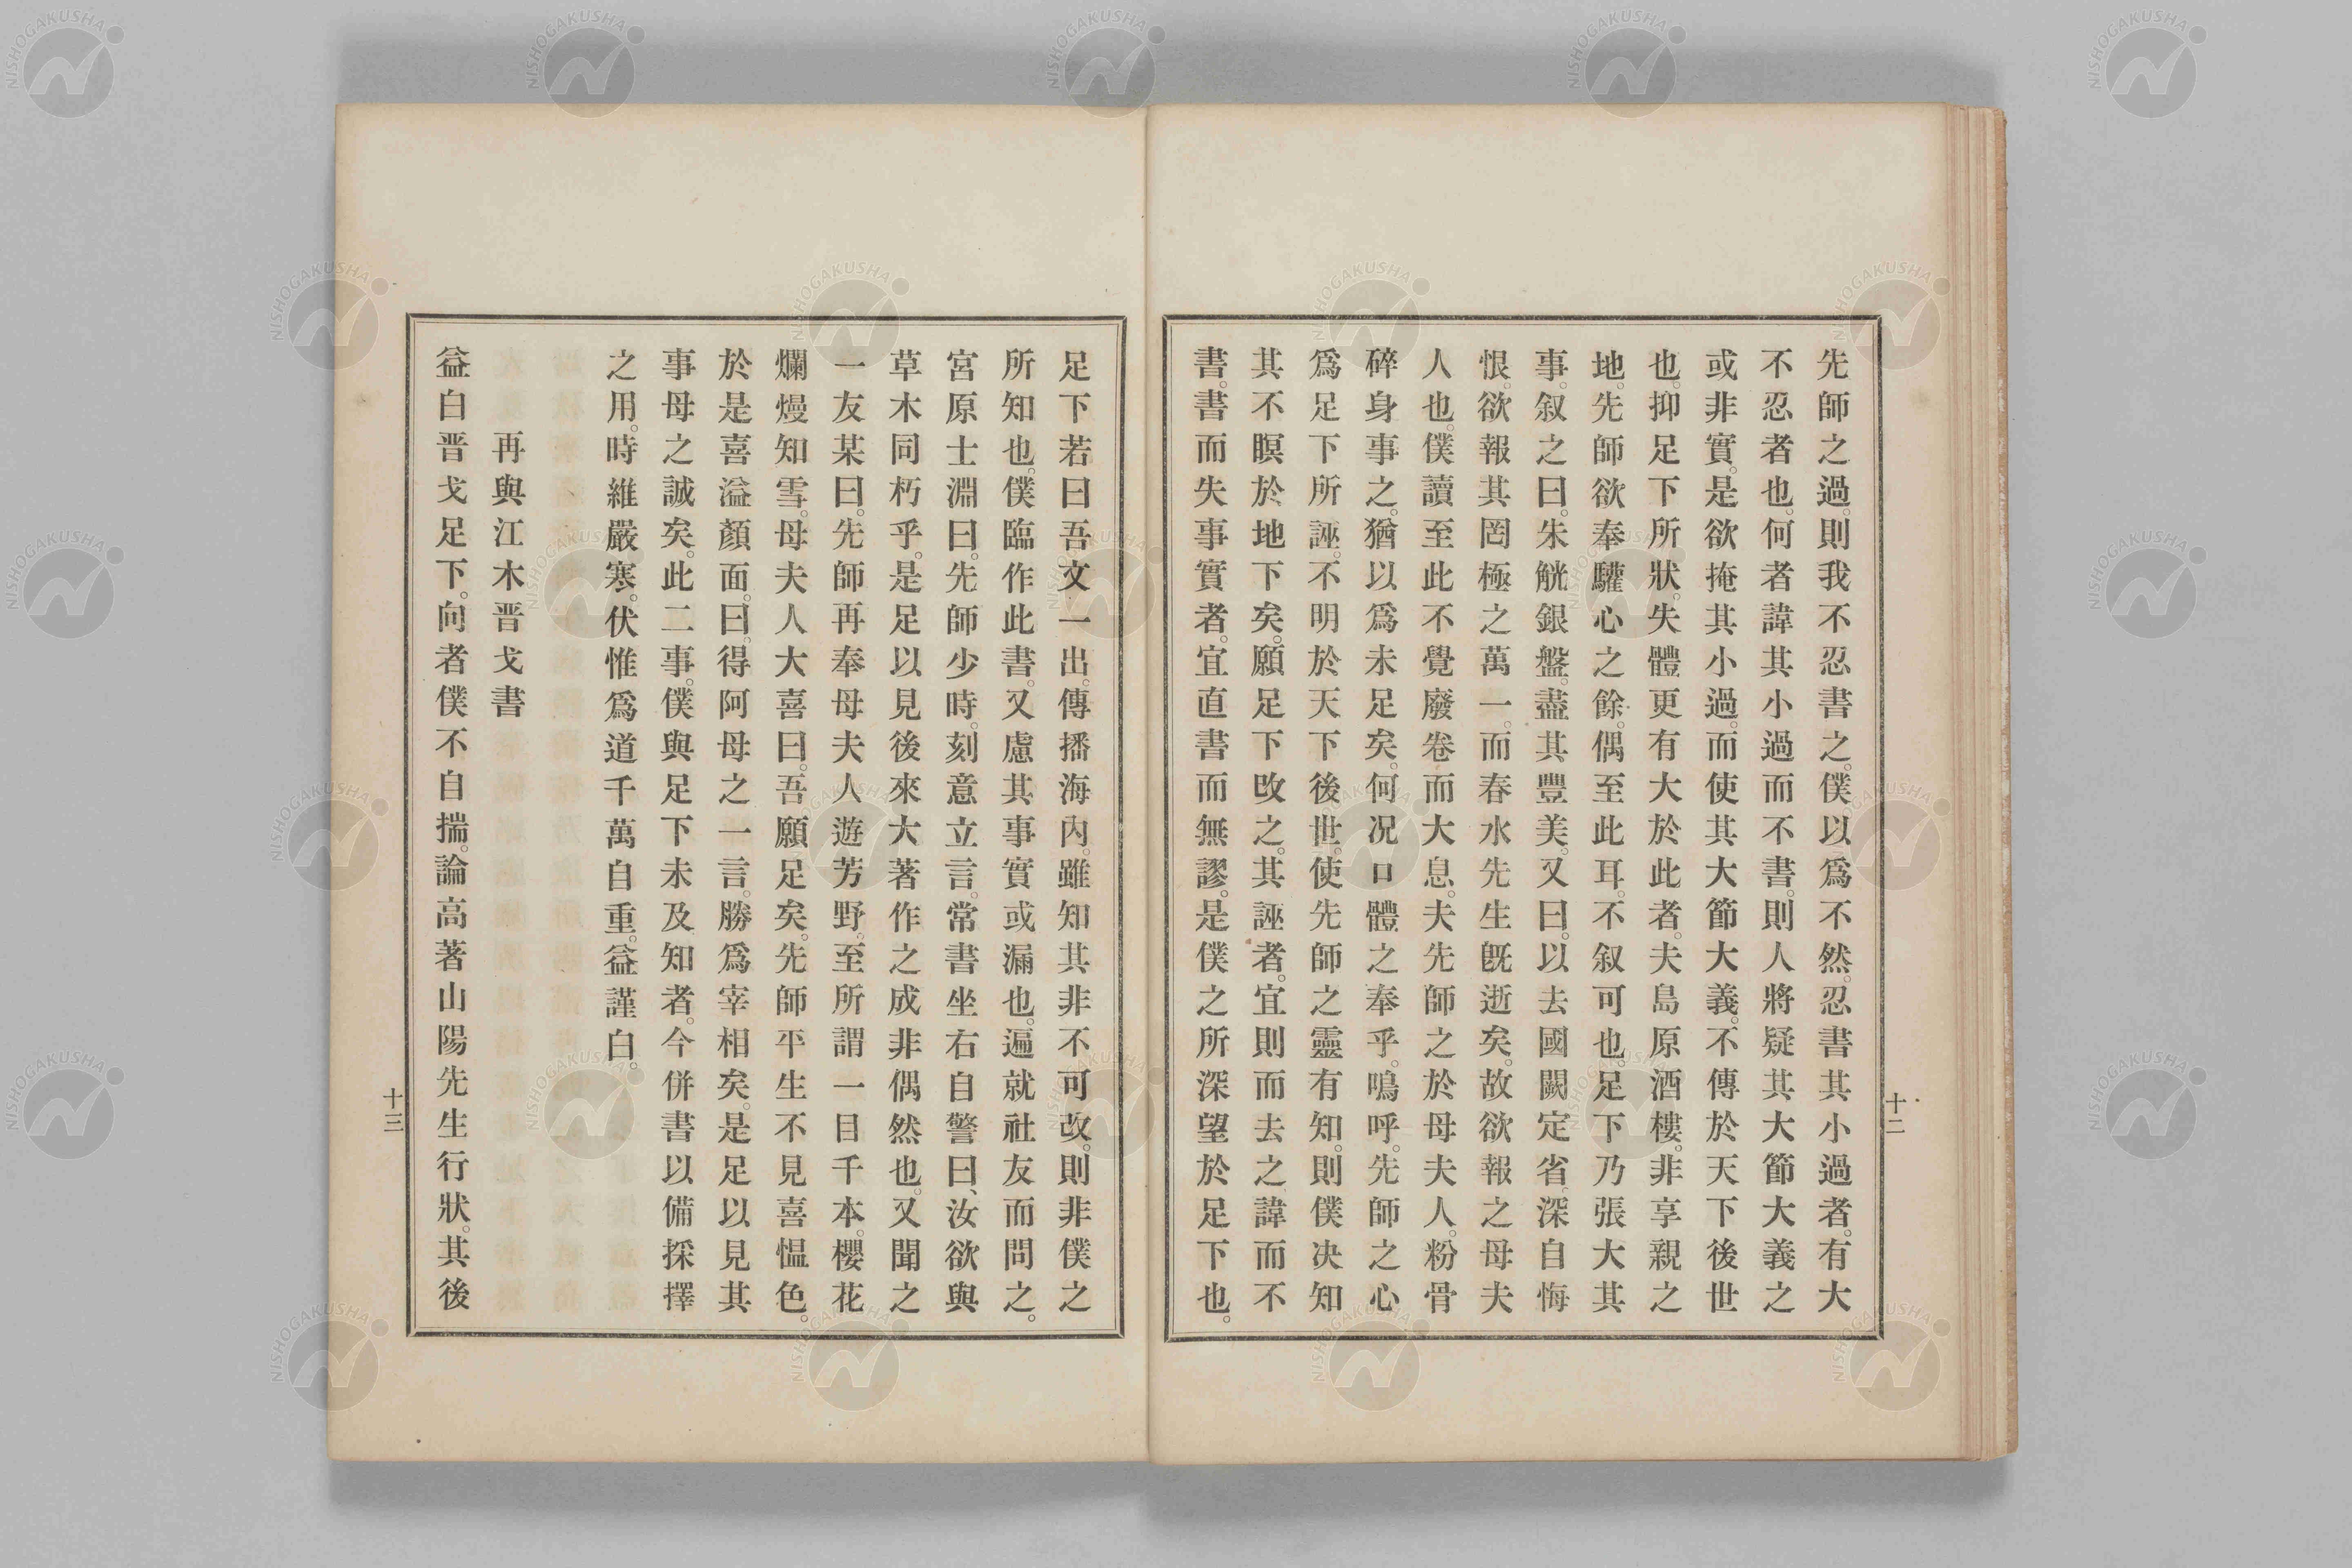 先師之過。則我不忍書之。僕以爲不然。忍書其小過者。有大
不忍者也。何者諱其小過而不書。則人將疑其大節大義之
或非實。是欲掩其小過。而使其大節大義。不傳於天下後世
也。抑足下所狀。失體更有大於此者。夫島原酒樓。非享親之
地。先師欲奉驩心之餘。偶至此耳。不叙可也。足下乃張大其
事。叙之曰。朱觥銀盤。盡其豐美。又曰。以去國闕定省。深自悔
恨。欲報其罔極之萬一。而春水先生旣逝矣。故欲報之母夫
人也。僕讀至此不覺廢卷而大息。夫先師之於母夫人。粉骨
碎身事之。猶以爲未足矣。何况口體之奉乎。鳴呼。先師之心
爲足下所誣。不明於天下後世。使先師之靈有知。則僕决知
其不瞑於地下矣。願足下改之。其誣者。宜則而去之諱而不
書。書而失事實者。宜直書而無謬。是僕之所深望於足下也。
十二
足下若曰吾文一出。傳播海內。雖知其非不可改。則非僕之
所知也。僕臨作此書。又慮其事實或漏也。遍就社友而問之。
宮原士淵曰。先師少時。刻意立言。常書坐右自警曰、汝欲與
草木同朽乎。是足以見後來大著作之成非偶然也。又聞之
一友某曰。先師再奉母夫人遊芳野。至所謂一目千本。櫻花
爛熳知雪。母夫人大喜曰。吾願足矣。先師平生不見喜愠色。
於是喜溢顏面。曰。得阿母之一言。勝爲宰相矣。是足以見其
事母之誠矣。此二事。僕與足下未及知者。今併書以備採擇
之用。時維嚴寒。伏惟爲道千萬自重。益謹白。
再與江木晋戈書
益白晋戈足下。向者僕不自揣。論高著山陽先生行狀。其後
十三
NISHOGAKUSHA